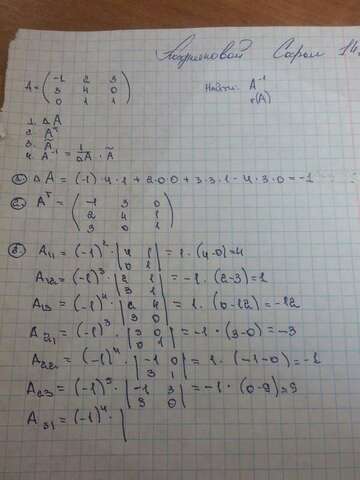 A = ( -1 2 3
3 4 0
0 1 1 )
Найти: A⁻¹
r(A)
1. ΔA
2. Aᵀ
3. Ã
4. A⁻¹ = 1/ΔA · Ã
ΔA = (-1)·4·1 + 2·0·0 + 3·3·1 - 4·3·0 = -1
2. Aᵀ = ( -1 3 0
2 4 1
3 0 1 )
3. A₁₁ = (-1)² · | 4 1
0 1 | = 1·(4-0) = 4
A₁₂ = (-1)³ · | 2 1
3 1 | = -1·(2-3) = 1
A₁₃ = (-1)⁴ · | 2 4
3 0 | = 1·(0-12) = -12
A₂₁ = (-1)³ · | 3 0
0 1 | = -1·(3-0) = -3
A₂₂ = (-1)⁴ · | -1 0
3 1 | = 1·(-1-0) = -1
A₂₃ = (-1)⁵ · | -1 3
3 0 | = -1·(0-9) = 9
A₃₁ = (-1)⁴ · |